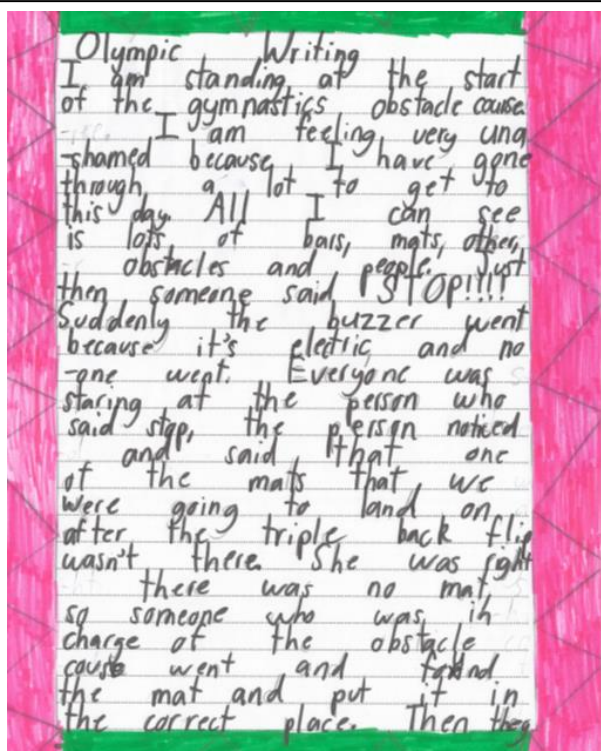 Olympic Writing
I am standing at the start
of the gymnastics obstacle course.
I am feeling very una
-shamed because I have gone
through a lot to get to
this day. All I can see
is lots of bars, mats, other,
obstacles and people. Just
then someone said "STOP!!!!
Suddenly the buzzer went
because it's electric and no
-one went. Everyone was
staring at the person who
said stop, the person noticed
and said "that one
of the mats that we
were going to land on
after the triple back flip
wasn't there. She was right
there was no mat,
so someone who was in
charge of the obstacle
couse went and found
the mat and put it in
the correct place. Then they